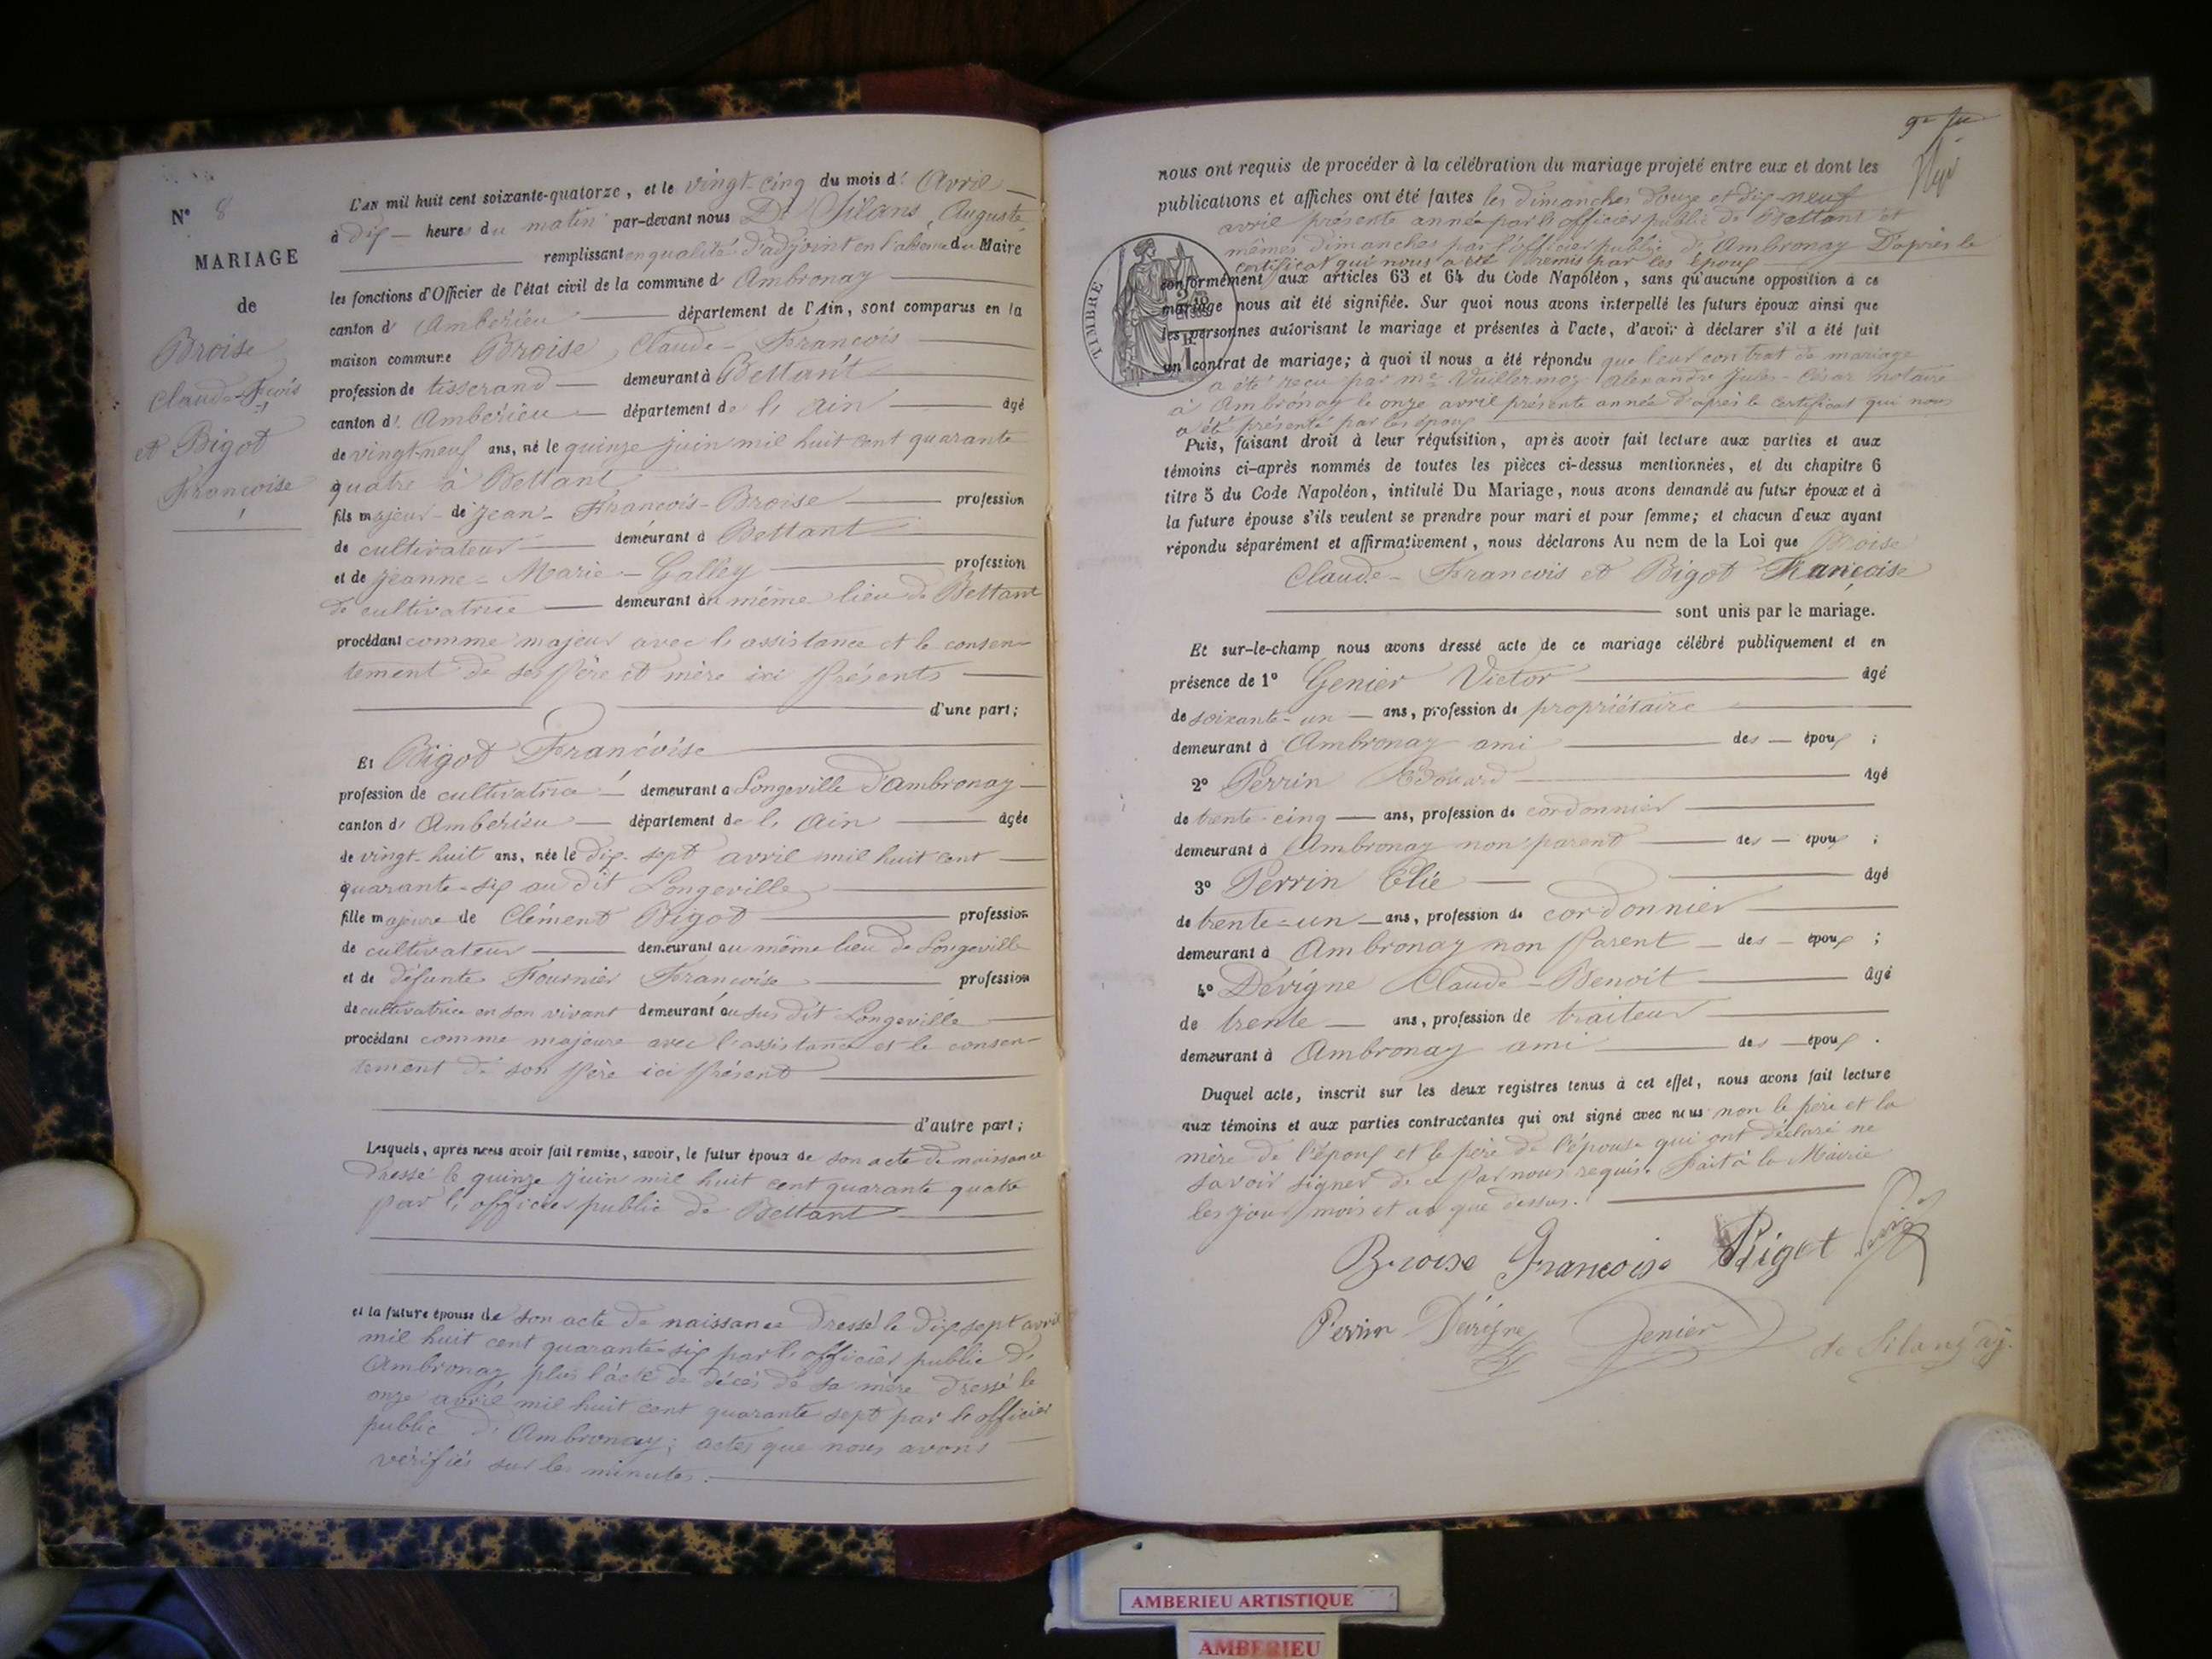 N° 8
MARIAGE
de
Broise
Claude-Fcois
et Bigot
Francoise
L'AN mil huit cent soixante-quatorze, et le vingt-cinq du mois d' Avril
à dix heures du matin par-devant nous De Silans, Auguste
remplissant en qualité d'adjoint en l'absence du Maire
les fonctions d'Officier de l'état civil de la commune d' Ambronay
canton d' Ambérieu département de l'Ain, sont comparus en la
maison commune Broise, Claude-Francois
profession de tisserand demeurant à Bettant
canton d' Ambérieu département de l'Ain âgé
de vingt-neuf ans, né le quinze juin mil huit cent quarante
quatre à Bettant
fils majeur de Jean-Francois-Broise profession
de cultivateur demeurant à Bettant
et de Jeanne-Marie-Galley profession
de cultivatrice demeurant au même lieu de Bettant
procédant comme majeur avec l'assistance et le consen-
tement de ses père et mère ici présents
d'une part;
Et Bigot Francoise
profession de cultivatrice demeurant à Longeville d'Ambronay
canton d' Ambérieu département de l'Ain âgée
de vingt-huit ans, née le dix-sept avril mil huit cent
quarante-six au dit Longeville
fille majeure de Clément Bigot profession
de cultivateur demeurant au même lieu de Longeville
et de défunte Fournier Francoise profession
de cultivatrice en son vivant demeurant au sus dit Longeville
procédant comme majeure avec l'assistance et le consen-
tement de son père ici présent
d'autre part;
Lesquels, après nous avoir fait remise, savoir, le futur époux de son acte de naissance
dressé le quinze juin mil huit cent quarante quatre
par l'officier public de Bettant
et la future épouse de son acte de naissance dressé le dix sept avril
mil huit cent quarante-six par l'officier public d'
Ambronay plus l'acte de décès de sa mère dressé le
onze avril mil huit cent quarante sept par l'officier
public d'Ambronay; actes que nous avons
vérifiés sur les minutes.
nous ont requis de procéder à la célébration du mariage projeté entre eux et dont les
publications et affiches ont été faites les dimanches douze et dix-neuf
avril présente année par l'officier public de Bettant et
mêmes dimanches par l'officier public d'Ambronay D'après le
certificat qui nous a été remis par les époux
TIMBRE
conformément aux articles 63 et 64 du Code Napoléon, sans qu'aucune opposition à ce
mariage nous ait été signifiée. Sur quoi nous avons interpellé les futurs époux ainsi que
les personnes autorisant le mariage et présentes à l'acte, d'avoir à déclarer s'il a été fait
un contrat de mariage; à quoi il nous a été répondu que leur contrat de mariage
a été reçu par me Vuillermoz Alexandre Jules-César notaire
à Ambronay le onze avril présente année d'après le certificat qui nous
a été présenté par les époux
Puis, faisant droit à leur réquisition, après avoir fait lecture aux parties et aux
témoins ci-après nommés de toutes les pièces ci-dessus mentionnées, et du chapitre 6
titre 5 du Code Napoléon, intitulé Du Mariage, nous avons demandé au futur époux et à
la future épouse s'ils veulent se prendre pour mari et pour femme; et chacun d'eux ayant
répondu séparément et affirmativement, nous déclarons Au nom de la Loi que Broise
Claude-Francois et Bigot Françoise
sont unis par le mariage.
Et sur-le-champ nous avons dressé acte de ce mariage célébré publiquement et en
présence de 1° Genier Victor âgé
de soixante-un ans, profession de propriétaire
demeurant à Ambronay ami des époux;
2° Perrin Edouard âgé
de trente-cinq ans, profession de cordonnier
demeurant à Ambronay non parent des époux;
3° Perrin Elie âgé
de trente-un ans, profession de cordonnier
demeurant à Ambronay non parent des époux;
4° Dévigne Claude-Benoit âgé
de trente ans, profession de traiteur
demeurant à Ambronay ami des époux.
Duquel acte, inscrit sur les deux registres tenus à cet effet, nous avons fait lecture
aux témoins et aux parties contractantes qui ont signé avec nous non le père et la
mère de l'époux et le père de l'épouse qui ont déclaré ne
savoir signer de ce par nous requis. Fait à la Mairie
les jour mois et an que dessus.
Broise Francoise Bigot
Perrin Dévigne Genier de Silans adj.
AMBERIEU ARTISTIQUE
AMBERIEU